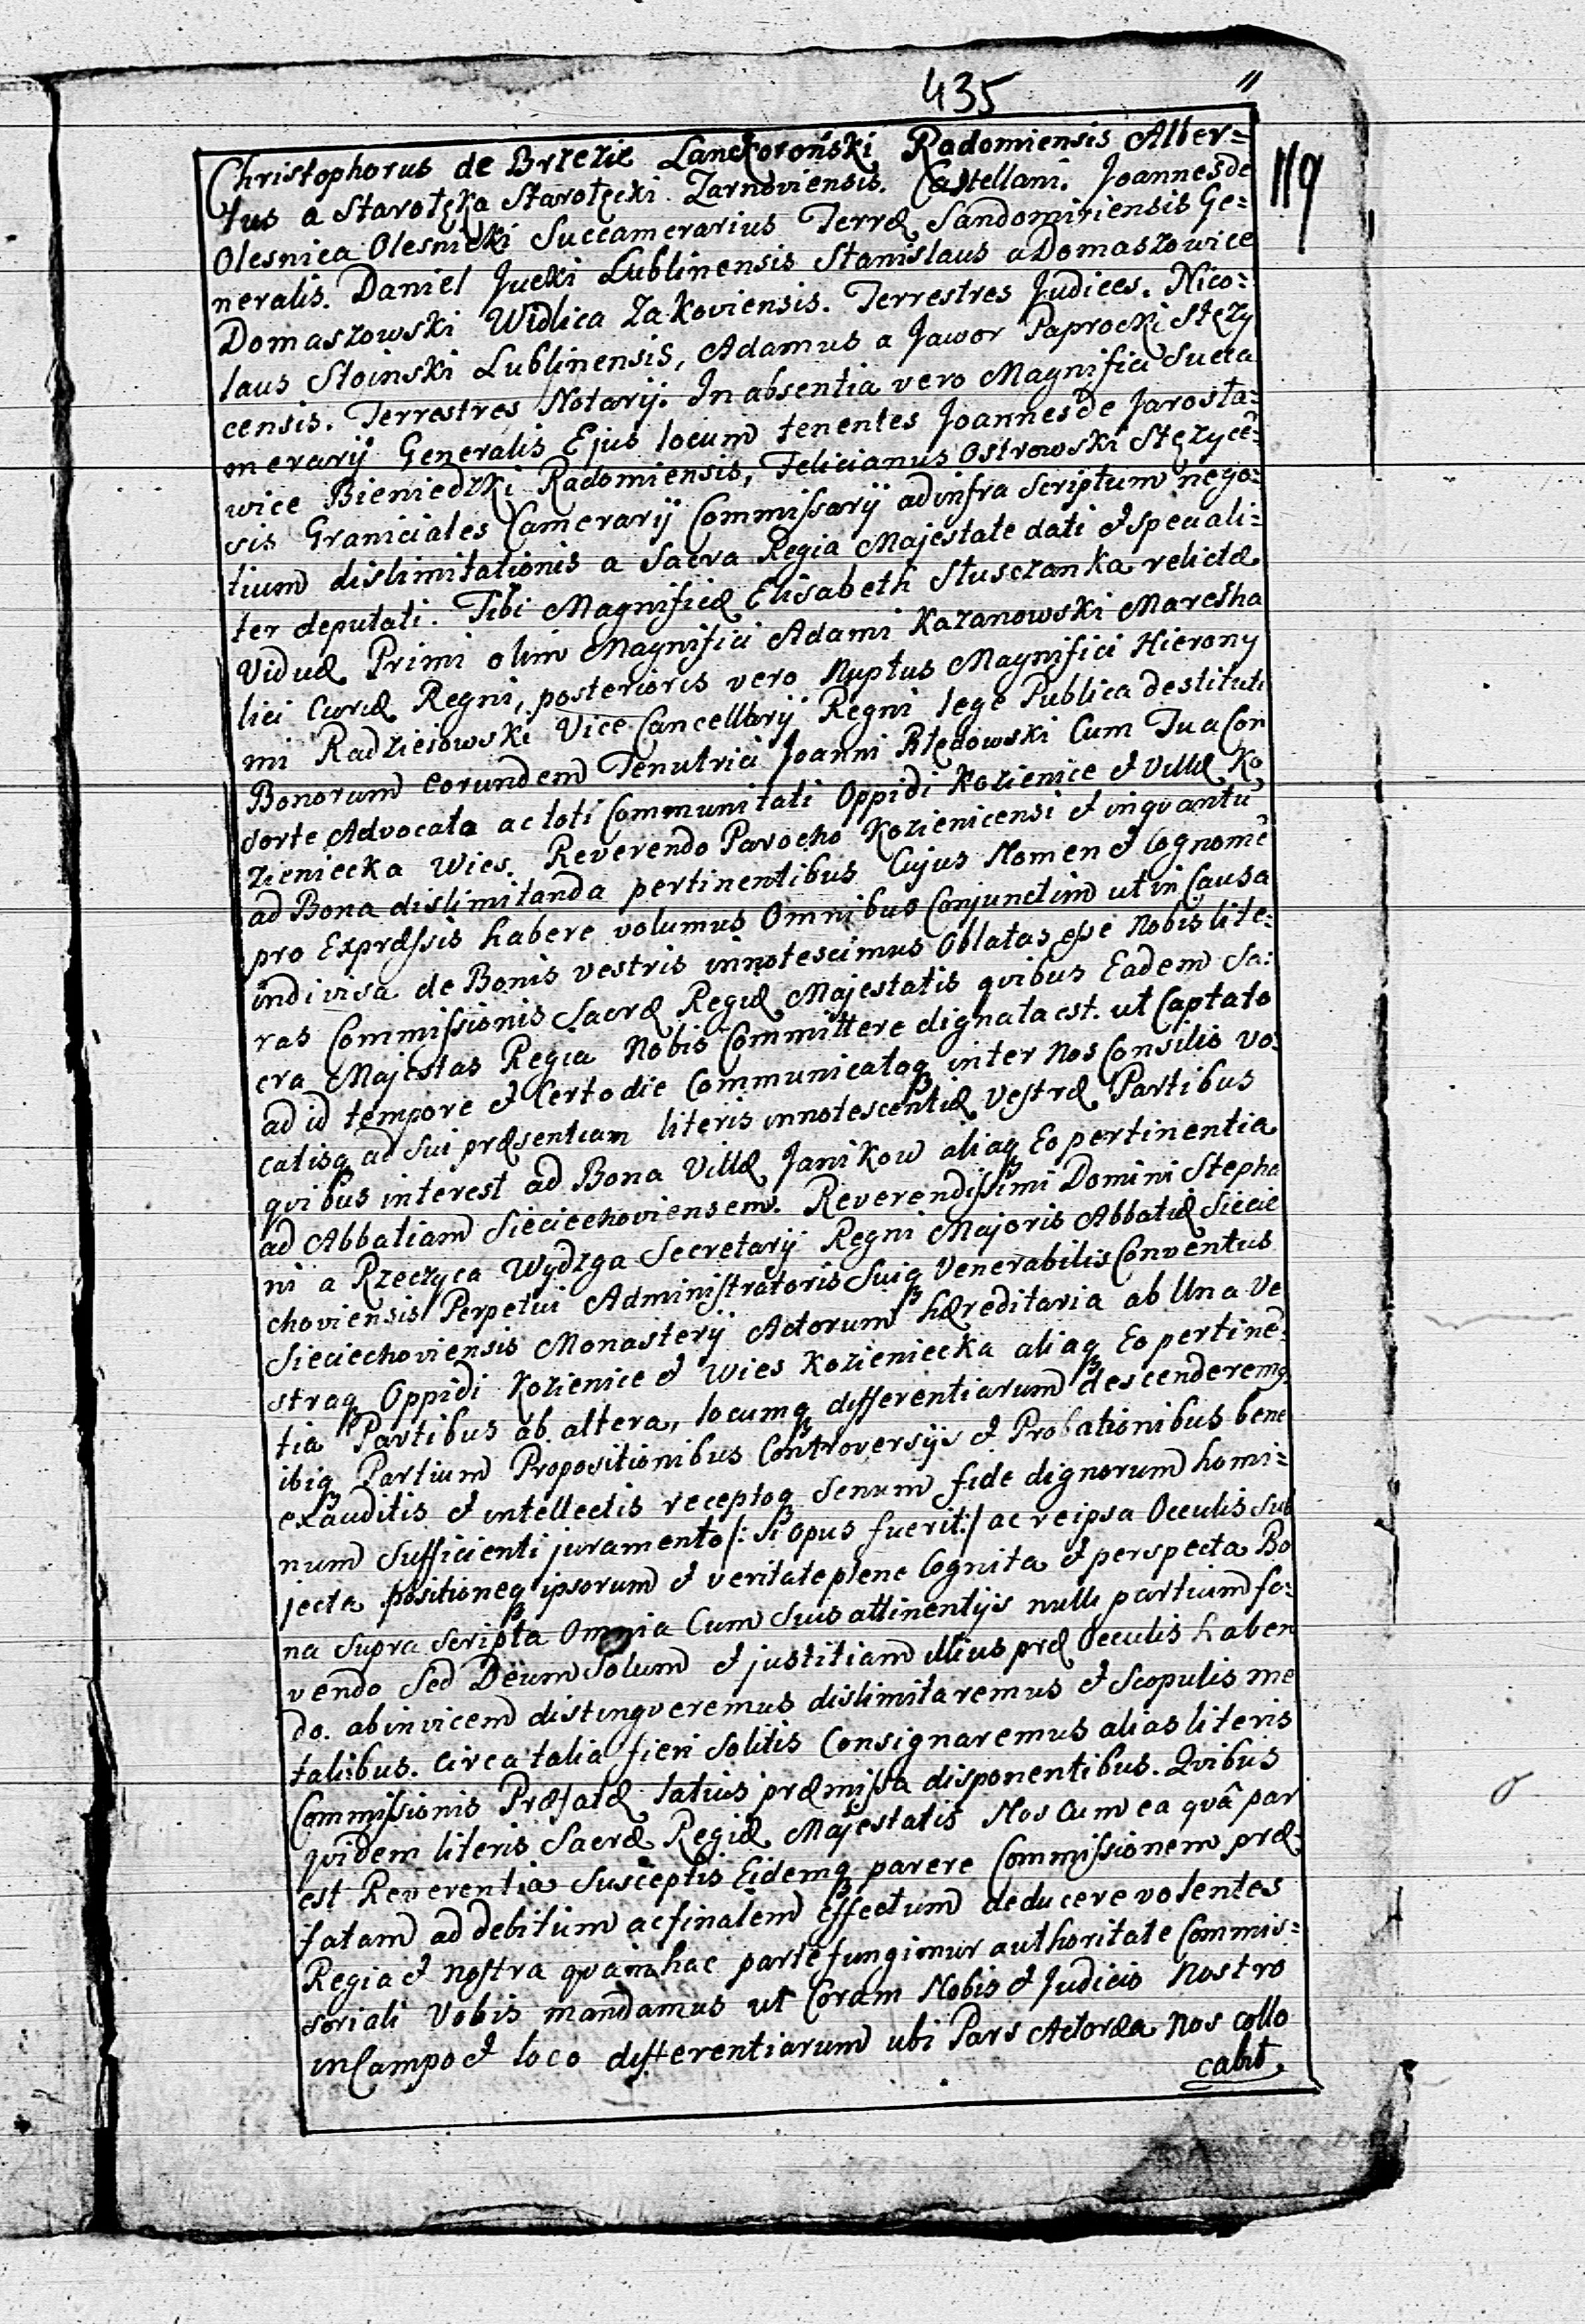 435 "
119
Christophorus de Brzezie Lanckoroński Radomiensis Alber=
tus a Starołęka Starołęcki Zarnoviensis. Castellani. Joannes de
Olesnica Olesnicki Succamerarius Terræ Sandomiriensis Ge=
neralis. Daniel Jucki Lublinensis Stanislaus a Domaszowice
Domaszowski Widlica Zakoviensis. Terrestres Judices. Nico=
laus Stoinski Lublinensis, Adamus a Jawor Paprocki Stęzy
censis. Terrestres Notarij. In absentia vero Magnifici Succa
merarij Generalis Ejus locum tenentes Joannes de Jarosta=
wice Bieniedzki Radomiensis, Felicianus Ostrowski Stęzycē=
sis Graniciales Camerarij Commissarij ad infra scriptum nego=
tium dislimitationis a Sacra Regia Majestate dati et speciali=
ter deputati. Tibi Magnificæ Elisabeth Słuszanka relictæ
Viduæ Primi olim Magnifici Adami Kazanowski Marescha
lici Curiæ Regni, posterioris vero Nuptus Magnifici Hierony
mi Radziejowski Vice Cancellarij Regni lege Publica destituti
Bonorum eorundem Tenutrici Joanni Błędowski Cum Tua Con
sorte Advocata ac toti Communitati Oppidi Kozienice et Villæ Ko
zieniecka Wies. Reverendo Parocho Kozienicensi et inquantū
ad Bona dislimitanda pertinentibus Cujus Nomen et Cognomē
pro Expræssis habere volumus Omnibus Conjunctim ut in Causa
indivisa de Bonis vestris innotescimus Oblatas esse Nobis lite=
ras Commissionis Sacræ Regiæ Majestatis quibus Eadem Sa=
cra Majestas Regia Nobis Committere dignata est. ut Captato
ad id tempore et Certo die Communicatoq inter Nos Consilio vo=
catisq ad sui præsentiam literis innotescentiæ Vestræ Partibus
quibus interest ad Bona Villæ Janikow aliaq Eo pertinentia
ad Abbatiam Sieciechoviensem. Reverendissimi Domini Stepha
ni a Rzeczyca Wydzga Secretarij Regni Majoris Abbatiæ Siecie
choviensis Perpetui Administratoris Suiq Venerabilis Conventus
Sieciechoviensis Monasterij Actorum hæreditaria ab Una Ve
straq Oppidi Kozienice et Wies Kozieniecka aliaq Eo pertinē=
tia Partibus ab altera, locumq differentiarum descenderemq
ibiq Partium Propositionibus Controversijs et Probationibus bene
exauditis et intellectis receptoq Senum fide dignorum homi=
num sufficienti juramento /: si opus fuerit :/ ac reipsa Occulis sub
jecta positioneq ipsorum et veritate plene Cognita et perspecta Bo
na supra scripta Omnia Cum suis attinentijs nulli partium fa=
vendo sed Deum Solum et justitiam illius præ Occulis haben
do. ab invicem distingveremus dislimitaremus et Scopulis me
talibus. circa talia fieri solitis Consignaremus alias literis
Commissionis Præfatæ latius præmissa disponentibus. Qvibus
qvidem literis Sacræ Regiæ Majestatis Nos Cum ea quâ par
est Reverentia Susceptis Eidemq parere Commissionem præ
fatam ad debitum ac finalem Effectum deducere volentes
Regia et nostra qva in hac parte fungimur authoritate Commis=
soriali Vobis mandamus ut Coram Nobis et Judicio Nostro
in Campo et loco differentiarum ubi Pars Actorea Nos collo
cabit.